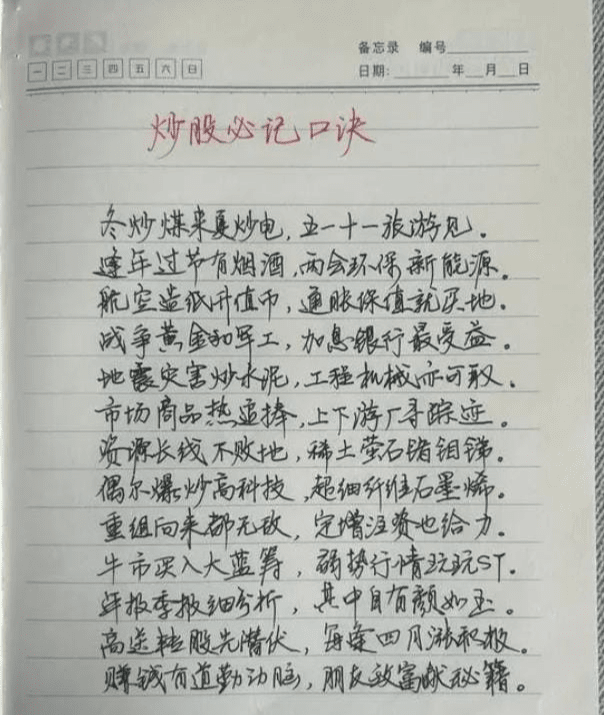 备忘录 编号
一 二 三 四 五 六 日 日期: 年 月 日
炒股必记口诀
冬炒煤来夏炒电, 五一十一旅游见。
逢年过节有烟酒, 两会环保新能源。
航空造纸升值币, 通胀保值就买地。
战争黄金和军工, 加息银行最受益。
地震灾害炒水泥, 工程机械亦可取。
市场商品热追捧, 上下游厂寻踪迹。
资源长线不败地, 稀土萤石锗钼锑。
偶尔爆炒高科技, 超细纤维石墨烯。
重组向来都无敌, 定增注资也给力。
牛市买入大蓝筹, 弱势行情玩玩ST.
年报季报细分析, 其中自有颜如玉。
高送转股先潜伏, 每逢四月涨积极。
赚钱有道勤动脑, 朋友致富献秘籍。